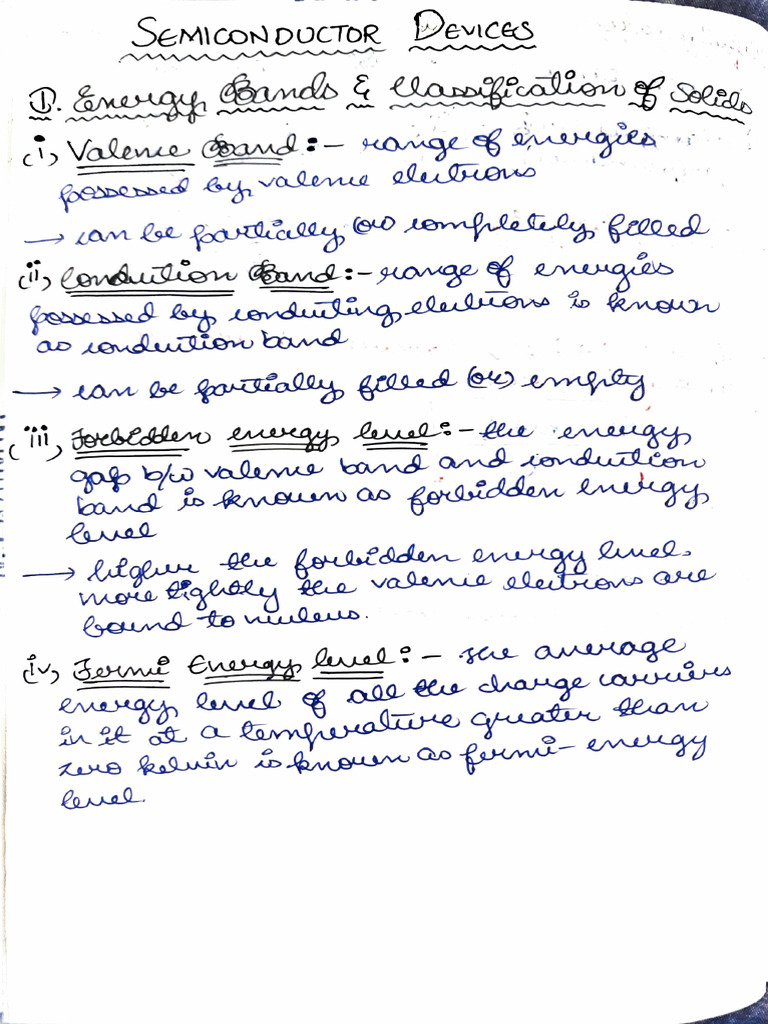 SEMICONDUCTOR DEVICES
1. Energy Bands & Classification of Solids
(i) Valence Band :- range of energies
possessed by valence electrons
→ can be partially (or) completely filled
(ii) Conduction Band :- range of energies
possessed by conducting electrons is known
as conduction band
→ can be partially filled (or) empty
(iii) Forbidden energy level :- the energy
gap b/w valence band and conduction
band is known as forbidden energy
level
→ higher the forbidden energy level
more tightly the valence electrons are
bound to nucleus.
(iv) Fermi Energy level :- The average
energy level of all the charge carriers
in it at a temperature greater than
zero kelvin is known as fermi-energy
level.